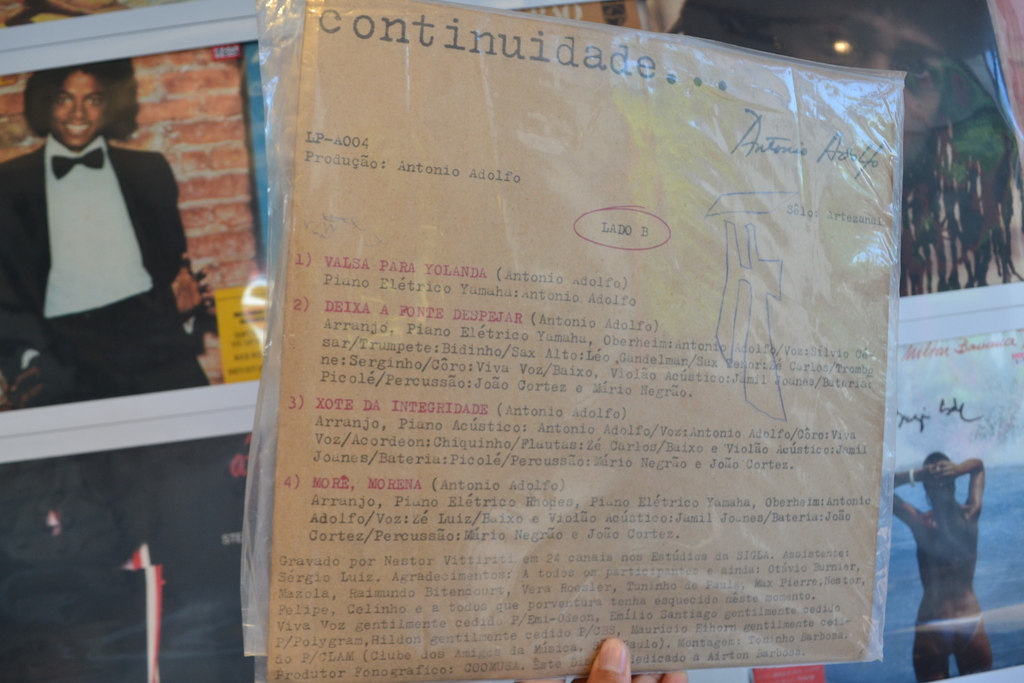 continuidade...
Antonio Adolfo
LP-A004
Produção: Antonio Adolfo
Sêlo: Artesanal
LADO B
1) VALSA PARA YOLANDA (Antonio Adolfo)
Piano Elétrico Yamaha:Antonio Adolfo
2) DEIXA A FONTE DESPEJAR (Antonio Adolfo)
Arranjo, Piano Elétrico Yamaha, Oberheim:Antonio Adolfo/Voz:Sílvio Cé-
sar/Trumpete:Bidinho/Sax Alto:Léo Gandelman/Sax Tenor:Zé Carlos/Trombo
ne:Serginho/Côro:Viva Voz/Baixo, Violão Acústico:Jamil Joanes/Bateria:
Picolé/Percussão:João Cortez e Mário Negrão.
3) XOTE DA INTEGRIDADE (Antonio Adolfo)
Arranjo, Piano Acústico: Antonio Adolfo/Voz:Antonio Adolfo/Côro:Viva
Voz/Acordeon:Chiquinho/Flautas:Zé Carlos/Baixo e Violão Acústico:Jamil
Joanes/Bateria:Picolé/Percussão:Mário Negrão e João Cortez.
4) MORÊ, MORENA (Antonio Adolfo)
Arranjo, Piano Elétrico Rhodes, Piano Elétrico Yamaha, Oberheim:Antonio
Adolfo/Voz:Zé Luiz/Baixo e Violão Acústico:Jamil Joanes/Bateria:João
Cortez/Percussão:Mário Negrão e João Cortez.
Gravado por Nestor Vittiriti em 24 canais nos Estúdios da SIGLA. Assistente:
Sérgio Luiz. Agradecimentos: A todos os participantes e ainda: Otávio Burnier,
Mazola, Raimundo Bitencourt, Vera Roesler, Toninho de Paula, Max Pierre, Nestor,
Felipe, Celinho e a todos que porventura tenha esquecido nêste momento.
Viva Voz gentilmente cedido P/Emi-Odeon, Emílio Santiago gentilmente cedido
P/Polygram, Hildon gentilmente cedido P/CBS, Maurício Eihorn gentilmente cedi-
do P/CLAM (Clube dos Amigos da Música, Paulo). Montagem: Toninho Barbosa.
Produtor Fonográfico: COOMUSA. Êste Disco dedicado a Airton Barbosa.